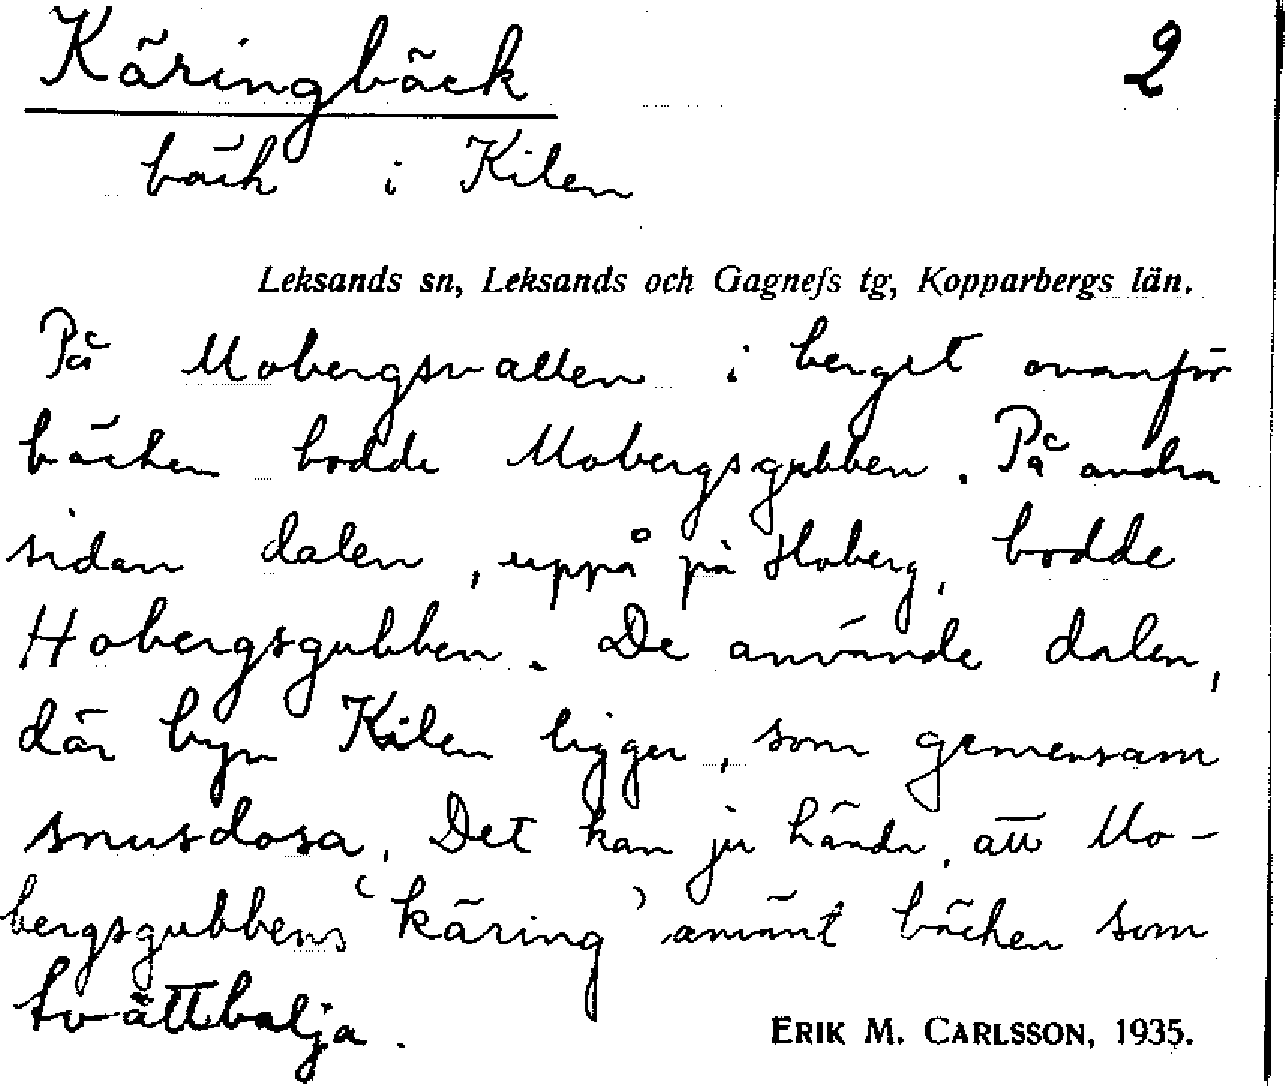 Käringbäck 2
bäck i Kilen
Leksands sn, Leksands och Gagnefs tg, Kopparbergs län.
På Mobergsvallen i berget ovanför
bäcken bodde Mobergsgubben. På andra
sidan dalen, uppå på Hoberg, bodde
Hobergsgubben. De använde dalen,
där byn Kilen ligger, som gemensam
snusdosa. Det kan ju hända, att Mo-
bergsgubbens 'käring' använt bäcken som
tvättbalja.
ERIK M. CARLSSON, 1935.